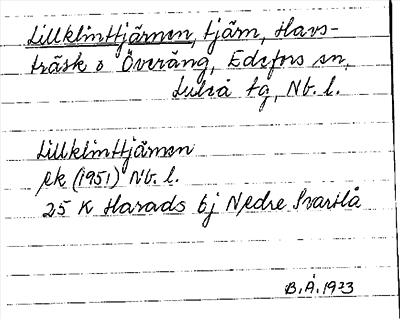 Lillklinttjärnen, tjärn, Havs-
träsk o Överäng, Edefors sn,
Luleå tg, Nb. l.
Lillklinttjärnen
ek (1951) Nb. l.
25 K Harads bj Nedre Svartlå
B.Å. 1973